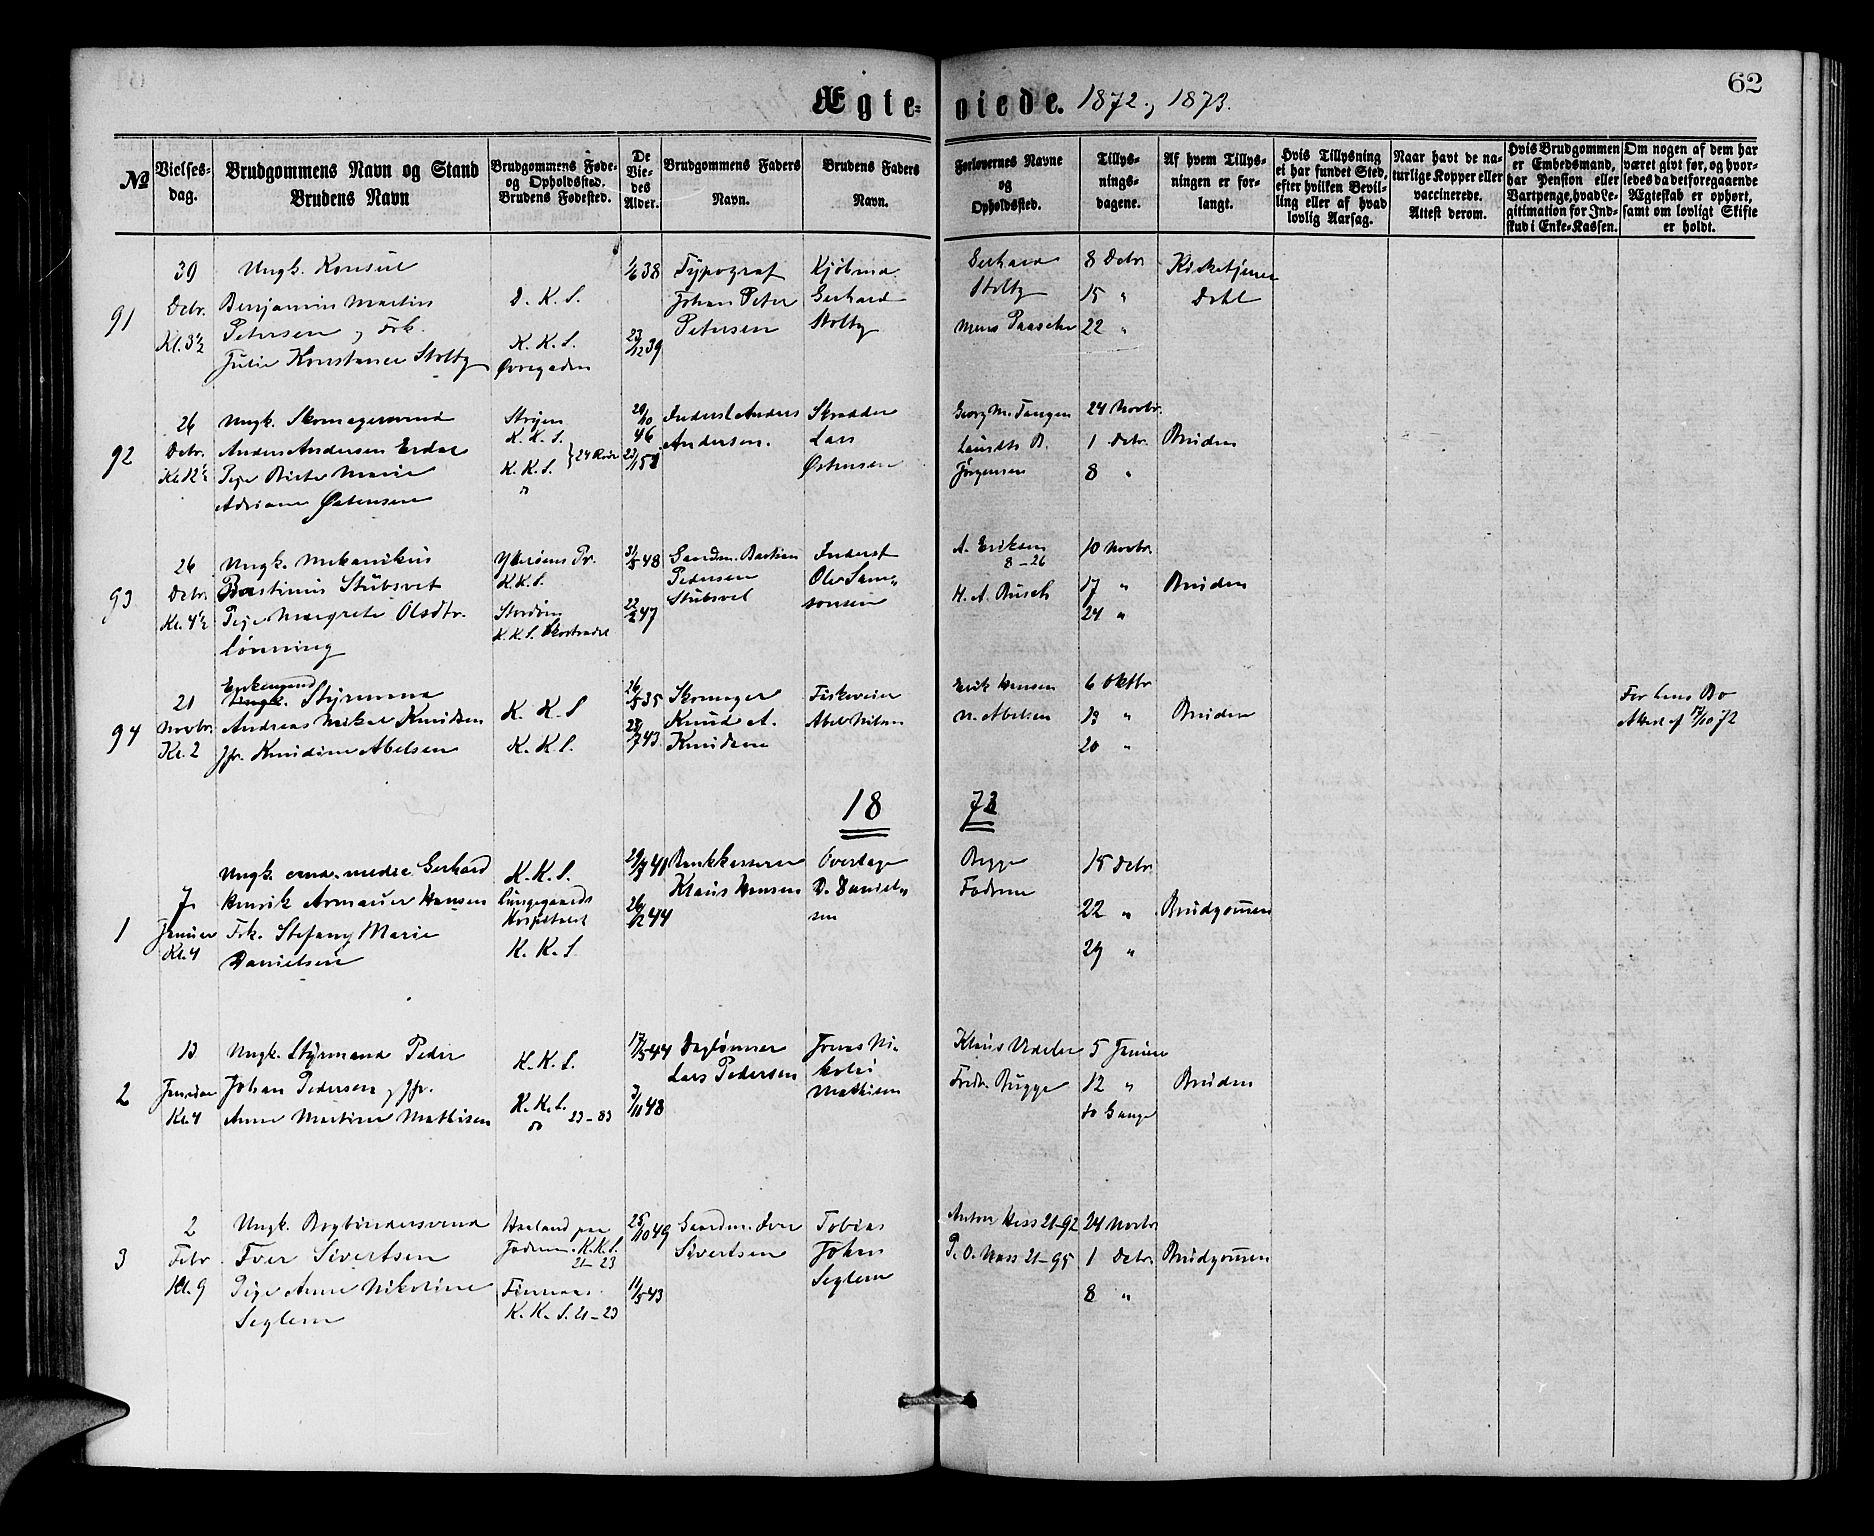 62
Ægteviede. 1872 og 1873.
№
Vielsesdag.
Brudgommens Navn og Stand
Brudens Navn
Brudgommens Føde- og Opholdssted.
Brudens Fødested.
De Viedes Alder.
Brudgommens Faders Navn.
Brudens Faders Navn.
Forlovernes Navne og Opholdssted.
Tillysningsdagene.
Af hvem Tillysningen er forlangt.
Hvis Tillysning ei har fundet Sted, efter hvilken Bevilling eller af hvad lovlig Aarsag.
Naar havt de naturlige Kopper eller vaccinerede. Attest derom.
Hvis Brudgommen er Embedsmand, har Pension eller Vartpenge, hvad Legitimation for Indskud i Enke-Kassen.
Om nogen af dem har været givt før, og hvorledes da det foregaaende Ægteskab er ophørt, samt om lovligt Skifte er holdt.
91
Decbr.
Kl. 3½
Ungk. Konsul
Benjamin Martin
Petersen og Frk.
Julie Konstance Stoltz
D. K. S.
K. K. S.
Øvregaden
1/6 38
23/12 39
Typograf
Johan Peter
Petersen
Kjøbmd
Gerhard
Stoltz
Gerhard
Stoltz
Mens Paasche
8 Decbr
15 "
22 "
Kirketjener
Dahl
92
26
Decbr.
Kl. 12½
Ungk. Skomagersvend
Anders Andersen Erdal
Pige Birte Marie
Adriane Østensen
K. K. S.
K. K. S.
24 Rode
46
Inderst Anders
Andersen.
Skrædder
Lars
Østensen
Georg M. Tangen
Laurits B.
Jørgensen
24 Novbr.
1 Decbr.
8 "
Bruden
93
26
Decbr
Kl. 4½
Ungk. Mekanikus
Bastinus Stubsvet
Pige Margrete Olsdtr.
Lønning
K.K.S.
Stordøen
K.K.S.
31/5 48
22/2 47
Gaardm. Bastian
Pedersen
Stubsvet
Inderst
Ole Sam-
sonsen
A. Eriksen
8-26
H. A. Busch
10 Novbr.
17 "
24 "
Bruden
94
21
Novbr.
Kl. 2
Enkemand
Ungk. Styrmand
Andreas Mikal Knudsen
Jfr. Knudine Abelsen
K. K. S
K. K. S.
26/5 35
Skomager
Knud A.
Knudsen
Abel Nilsen
Erik Hansen
N. Abelsen
6 Oktbr
13 "
20 "
Bruden
For hans Bo
Attest af 17/10 72
18 73
1
7
Januar
Kl. 4
Ungk. cand. medic. Gerhard
Henrik Armauer Hansen
Frk. Stefany Marie
Danielsen
K. K. S.
Lungegaards
Hospitalet
K. K. S
29/7 41
26/12 44
Bankkasserer
Klaus Hansen
Overlæge
D. Daniel-
sen
Begge
Fædrene
15 Decbr
22 "
29 "
Brudgommen
2
13
Januar
Kl. 4
Ungk. Styrmand Peder
Johan Pedersen og Jfr.
Anne Martine Mathisen
K. K. S.
K. K. S. 23-83
17/5 44
3/11 48
Dagløner
Lars Pedersen
Jonas Ni-
kolai
Mathisen
Klaus Udeler
Fredr. Bugge
5 Januar
12 "
to Gange
Bruden
3
2
Febr
Kl. 9
Ungk. Bogbindersvend
Iver Sivertsen
Pige Anne Nikoline
Seglem
Haaland paa
Jæderen. K.K.S.
21-23
Finnaas.
K. K. S. 21-23
25/10 49
11/5 43
Gaardm. Iver
Sivertsen
Tobias
John
Seglem
Anton Hess 21-92
P. O. Næss 21-95
24 Novbr
1 Decbr.
8 "
Brudgommen